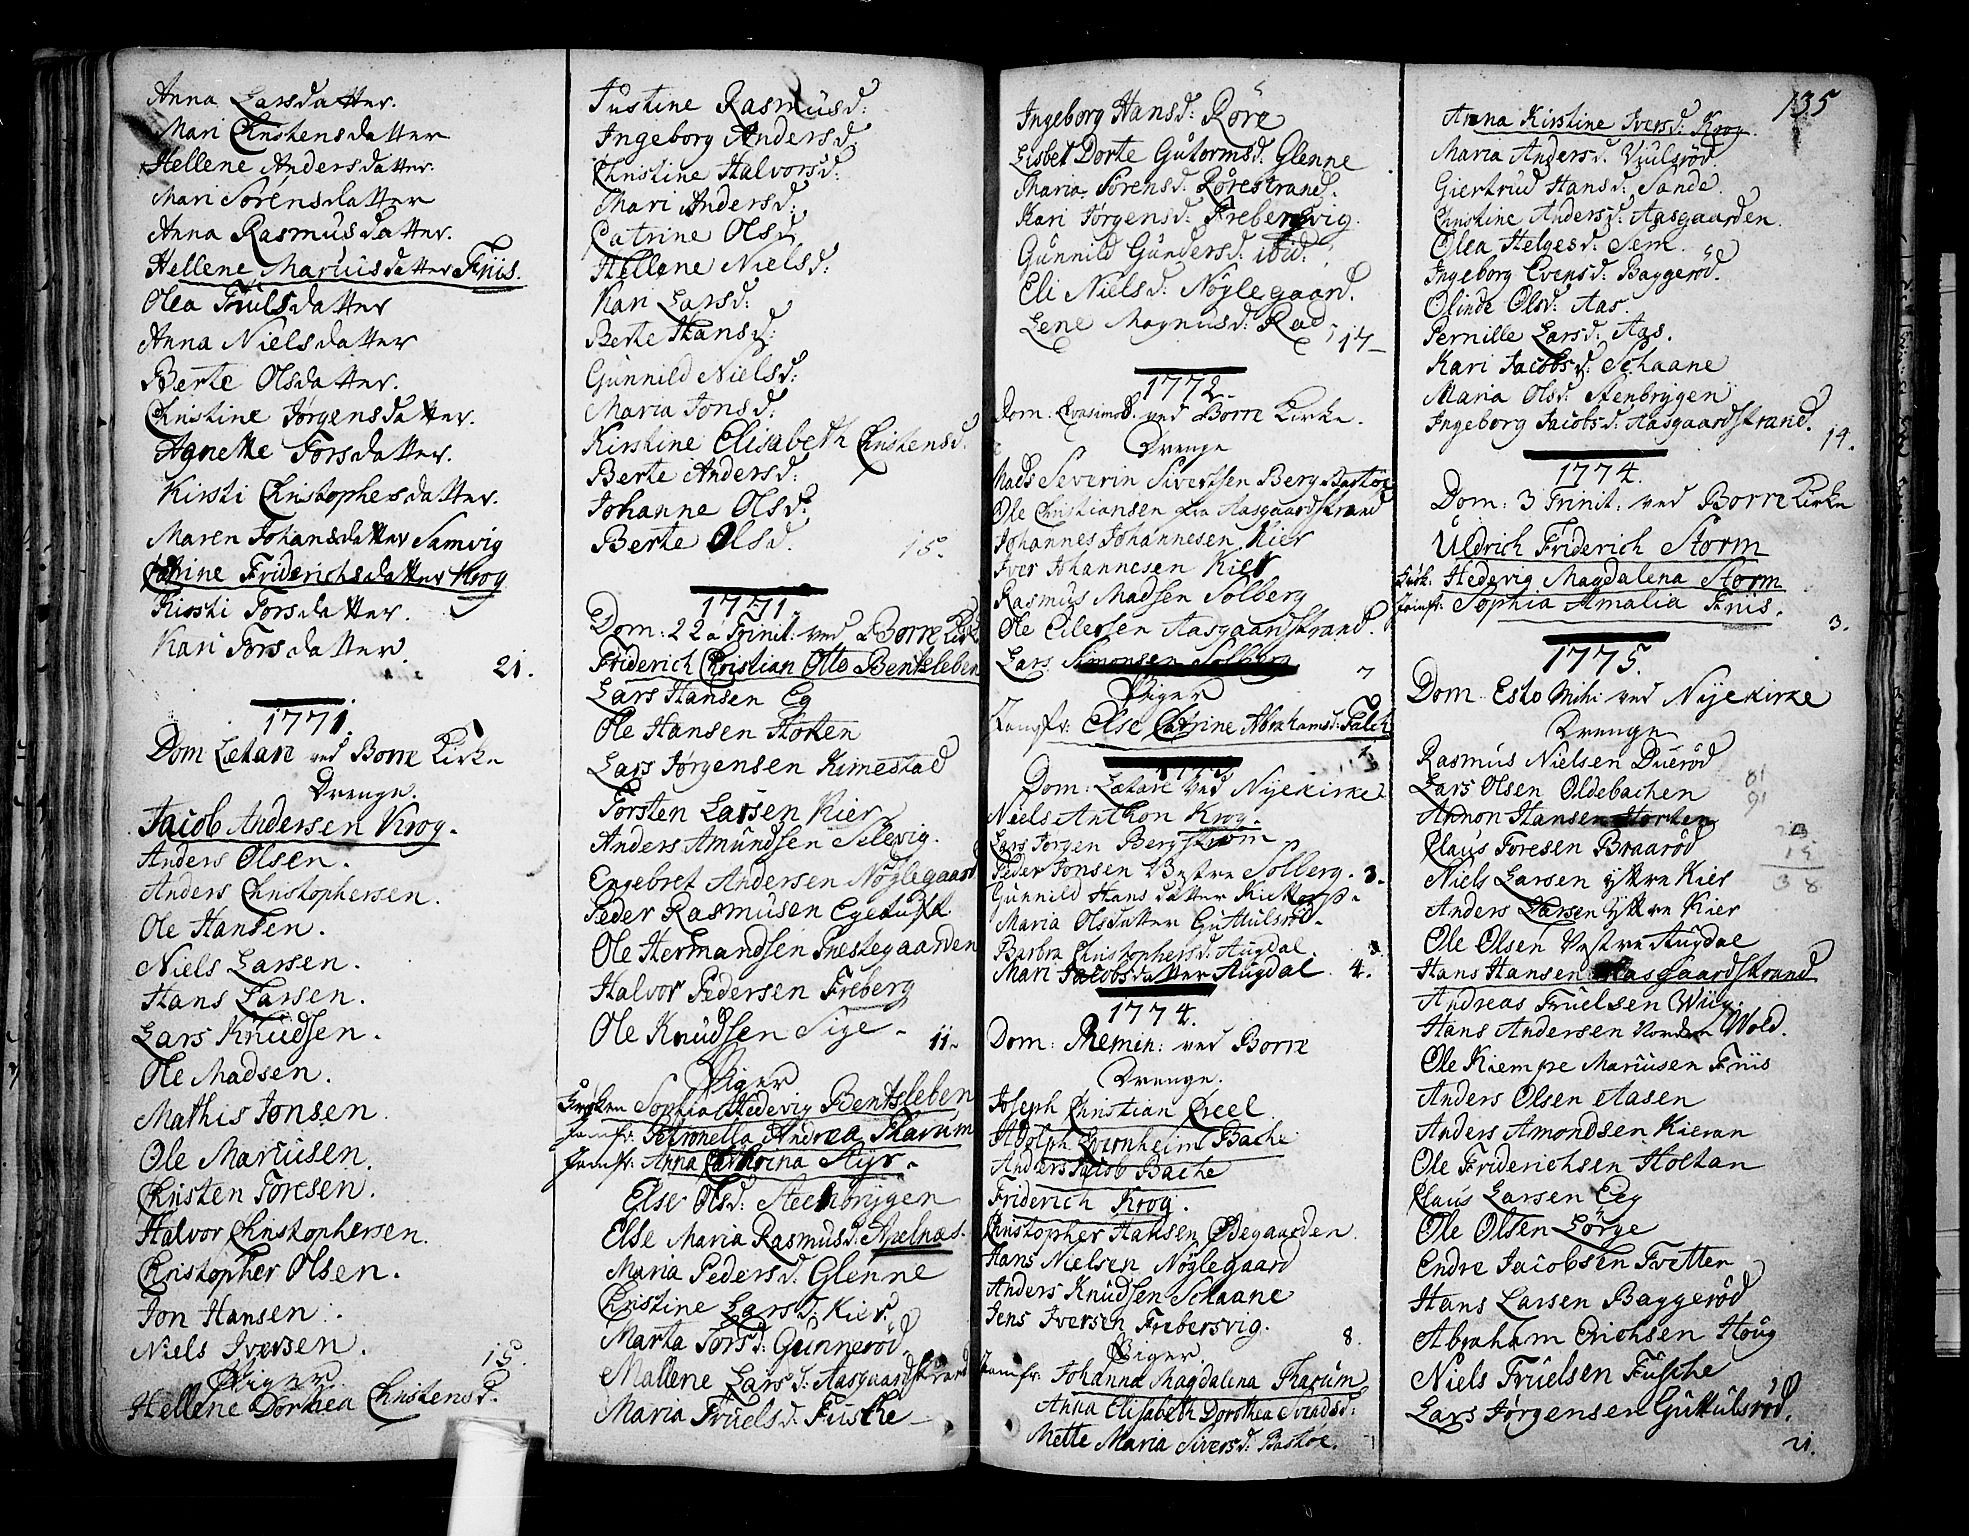 Anna Larsdatter.
Mari Christensdatter
Hellene Andersdatter.
Mari Sörensdatter
Anna Rasmusdatter.
Hellene Mariusdatter Friis.
Olea Trulsdatter
Anna Nielsdatter
Berte Olsdatter.
Christine Jörgensdatter.
Agnette Torsdatter.
Kirsti Christophersdatter.
Maren Johansdatter Samvig
Catrine Friderichsdatter Krog
Kirsti Torsdatter.
Kari Torsdatter.
21.
1771.
Dom. Lætare ved Borre Kirke
Drenge.
Jacob Andersen Krog.
Anders Olsen.
Anders Christophersen.
Ole Hansen.
Niels Larsen.
Hans Larsen.
Lars Knudsen.
Ole Madsen.
Mathis Jonsen.
Ole Mariusen.
Christen Toresen.
Halvor Christophersen.
Christopher Olsen.
Jon Hansen.
Niels Iversen.
15.
Piger
Hellene Dorthea Christensd.
Justine Rasmusd:
Ingeborg Andersd.
Christine Halvorsd:
Mari Andersd:
Catrine Olsd
Hellene Nielsd:
Kari Larsd:
Berte Hansd:
Gunnild Nielsd:
Maria Jonsd:
Kirstine Elisabeth Christensd.
Berte Andersd:
Johanne Olsd:
Berte Olsd.
15.
1771.
Dom: 22 a Trinit: ved Borre Kirke
Friderich Christian Otto Bentsleben
Lars Hansen Eg
Ole Hansen Horten
Lars Jörgensen Kimestad
Torsten Larsen Kier
Anders Amundsen Selevig.
Engebret Andersen Nöglegaard
Peder Rasmusen
Ole Hermandsen Prestegaarden
Halvor Pedersen Freberg
Ole Knudsen Sige.
11.
Piger
Fröken Sophia Hedevig Bentsleben
Jomfr: Petronella Andrea Tharum
Jomfr: Anna Cathrina Styr.
Else Olsd: Steenbrygen
Else Maria Rasmusd: Apelnæs.
Maria Pedersd. Glenne
Christine Larsd. Kier
Marta Torsd: Gunneröd.
Mallene Larsd. Aasgaardstrand
Maria Truelsd. Fuske
Ingeborg Hansd: Röre
Lisbet Dorte Gutormsd. Glenne
Maria Sörensd. Rörestrand.
Kari Jörgensd: Frebersvig.
Gunnild Gundersd: ibid:
Eli Nielsd. Nöglegaard.
Lene Magnusd: Rad
17
1772.
Dom: Qvasimod. ved Borre Kirke.
Drenge
Mads Severin Sivertsen Berg Bastöe
Ole Christiansen fra Aasgaardstrand
Johannes Johannesen Kier
Iver Johannesen Kier
Rasmus Madsen Solberg
Ole Eilersen Aasgaardstrand.
Lars Simonsen Solberg
7
Piger
Jomfr: Else Catrine Abrahamsd: Falch
1
1773
Dom: Lætare ved Nyekirke
Niels Anthon Krog.
Lars Jörgen Bergström
Peder Jonsen Vestre Solberg. 3.
Gunnild Hansdatter
Maria Olsdatter Guttulsröd.
Barbra Christophersd. Augdal.
Mari Jacobsdatter Augdal. 4.
1774.
Dom: Remin: ved Borre
Drenge.
Joseph Christian Creel
Adolph Bache
Anders Jacob Bache
Friderich Krog.
Christopher Hansen Ödegaarden
Hans Nielsen Nöglegaard
Anders Knudsen Schaane
Jens Iversen Frebersvig.
8.
Piger.
Jomfr: Johanna Magdalena Tharum
Anna Elisabeth Dorothea Svendsd:
Mette Maria Siversd: Bastöe.
135
Anna Kirstine Iversd: Krog.
Maria Andersd. Viulsröd
Giertrud Hansd: Sande.
Christine Andersd: Aasgaarden.
Olea Helgesd: Sem.
Ingeborg Evensd: Baggeröd.
Olinde Olsd: Aas.
Pernille Larsd: Aas.
Kari Jacobsd: Schaane
Maria Olsd. Stenbrygen
Ingeborg Jacobsd: Aasgaardstrand.
14.
1774.
Dom: 3 Trinit: ved Borre Kirke
Uldrich Friderich Storm
Frök: Hedevig Magdalena Storm
Jomfr: Sophia Amalia Friis.
3.
1775.
Dom Esto Mihi ved Nyekirke
Drenge
Rasmus Nielsen Dueröd
Lars Olsen Oldebachen
Amon Hansen Horten
Claus Toresen Braaröd
Niels Larsen yttre Kier
Anders Larsen yttre Kier
Ole Olsen Vestre Augdal
Hans Hansen Aasgaardstrand
Andreas Truelsen Wiig.
Hans Andersen Nordre Wold.
Ole Kiempe Mariusen Friis
Anders Olsen Aasen
Anders Amondsen Kieran
Ole Friderichsen Holtan
Claus Larsen Eeg
Ole Olsen Lörge
Endre Jacobsen Tvetter
Hans Larsen Baggeröd
Abraham Erichsen Houg
Niels Truelsen Fusche
Lars Jörgensen Guttulsröd.
21.